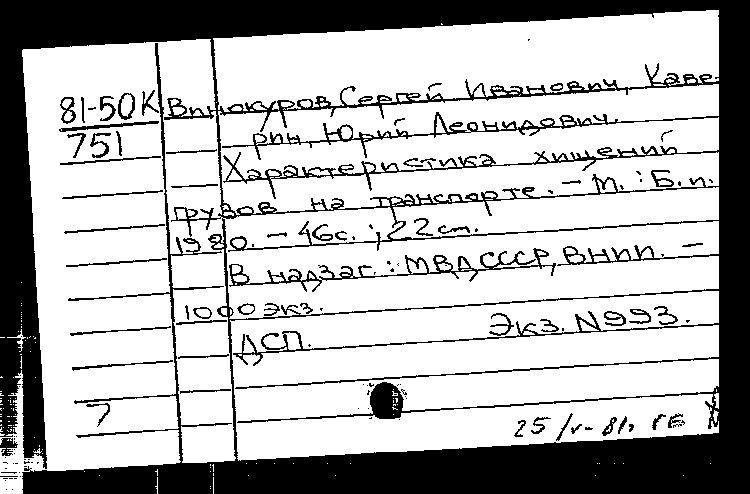 81-50К Винокуров, Сергей Иванович, Каве-
751 рин, Юрий Леонидович.
Характеристика хищений
грузов на транспорте. — М. : Б.и.
1980. — 46с. ; 22см.
В надзаг. : МВД СССР, ВНИИ. —
1000 экз.
ДСП. Экз. N993.
7
25/V-81г. ГБ